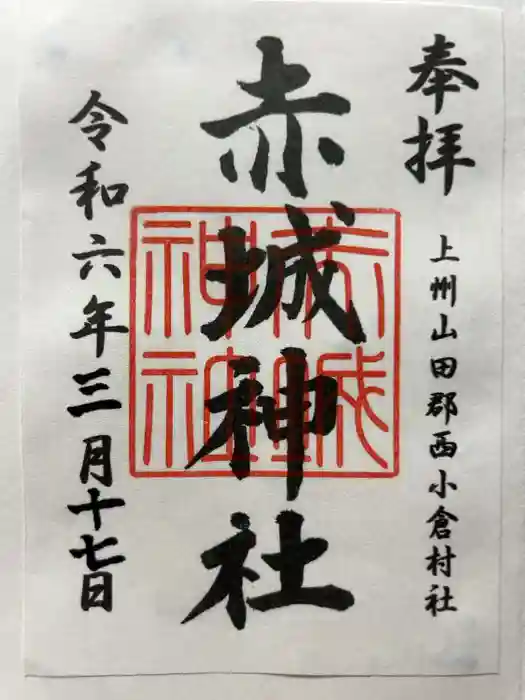 奉拝
上州山田郡西小倉村社
赤城神社
赤城神社
令和六年三月十七日